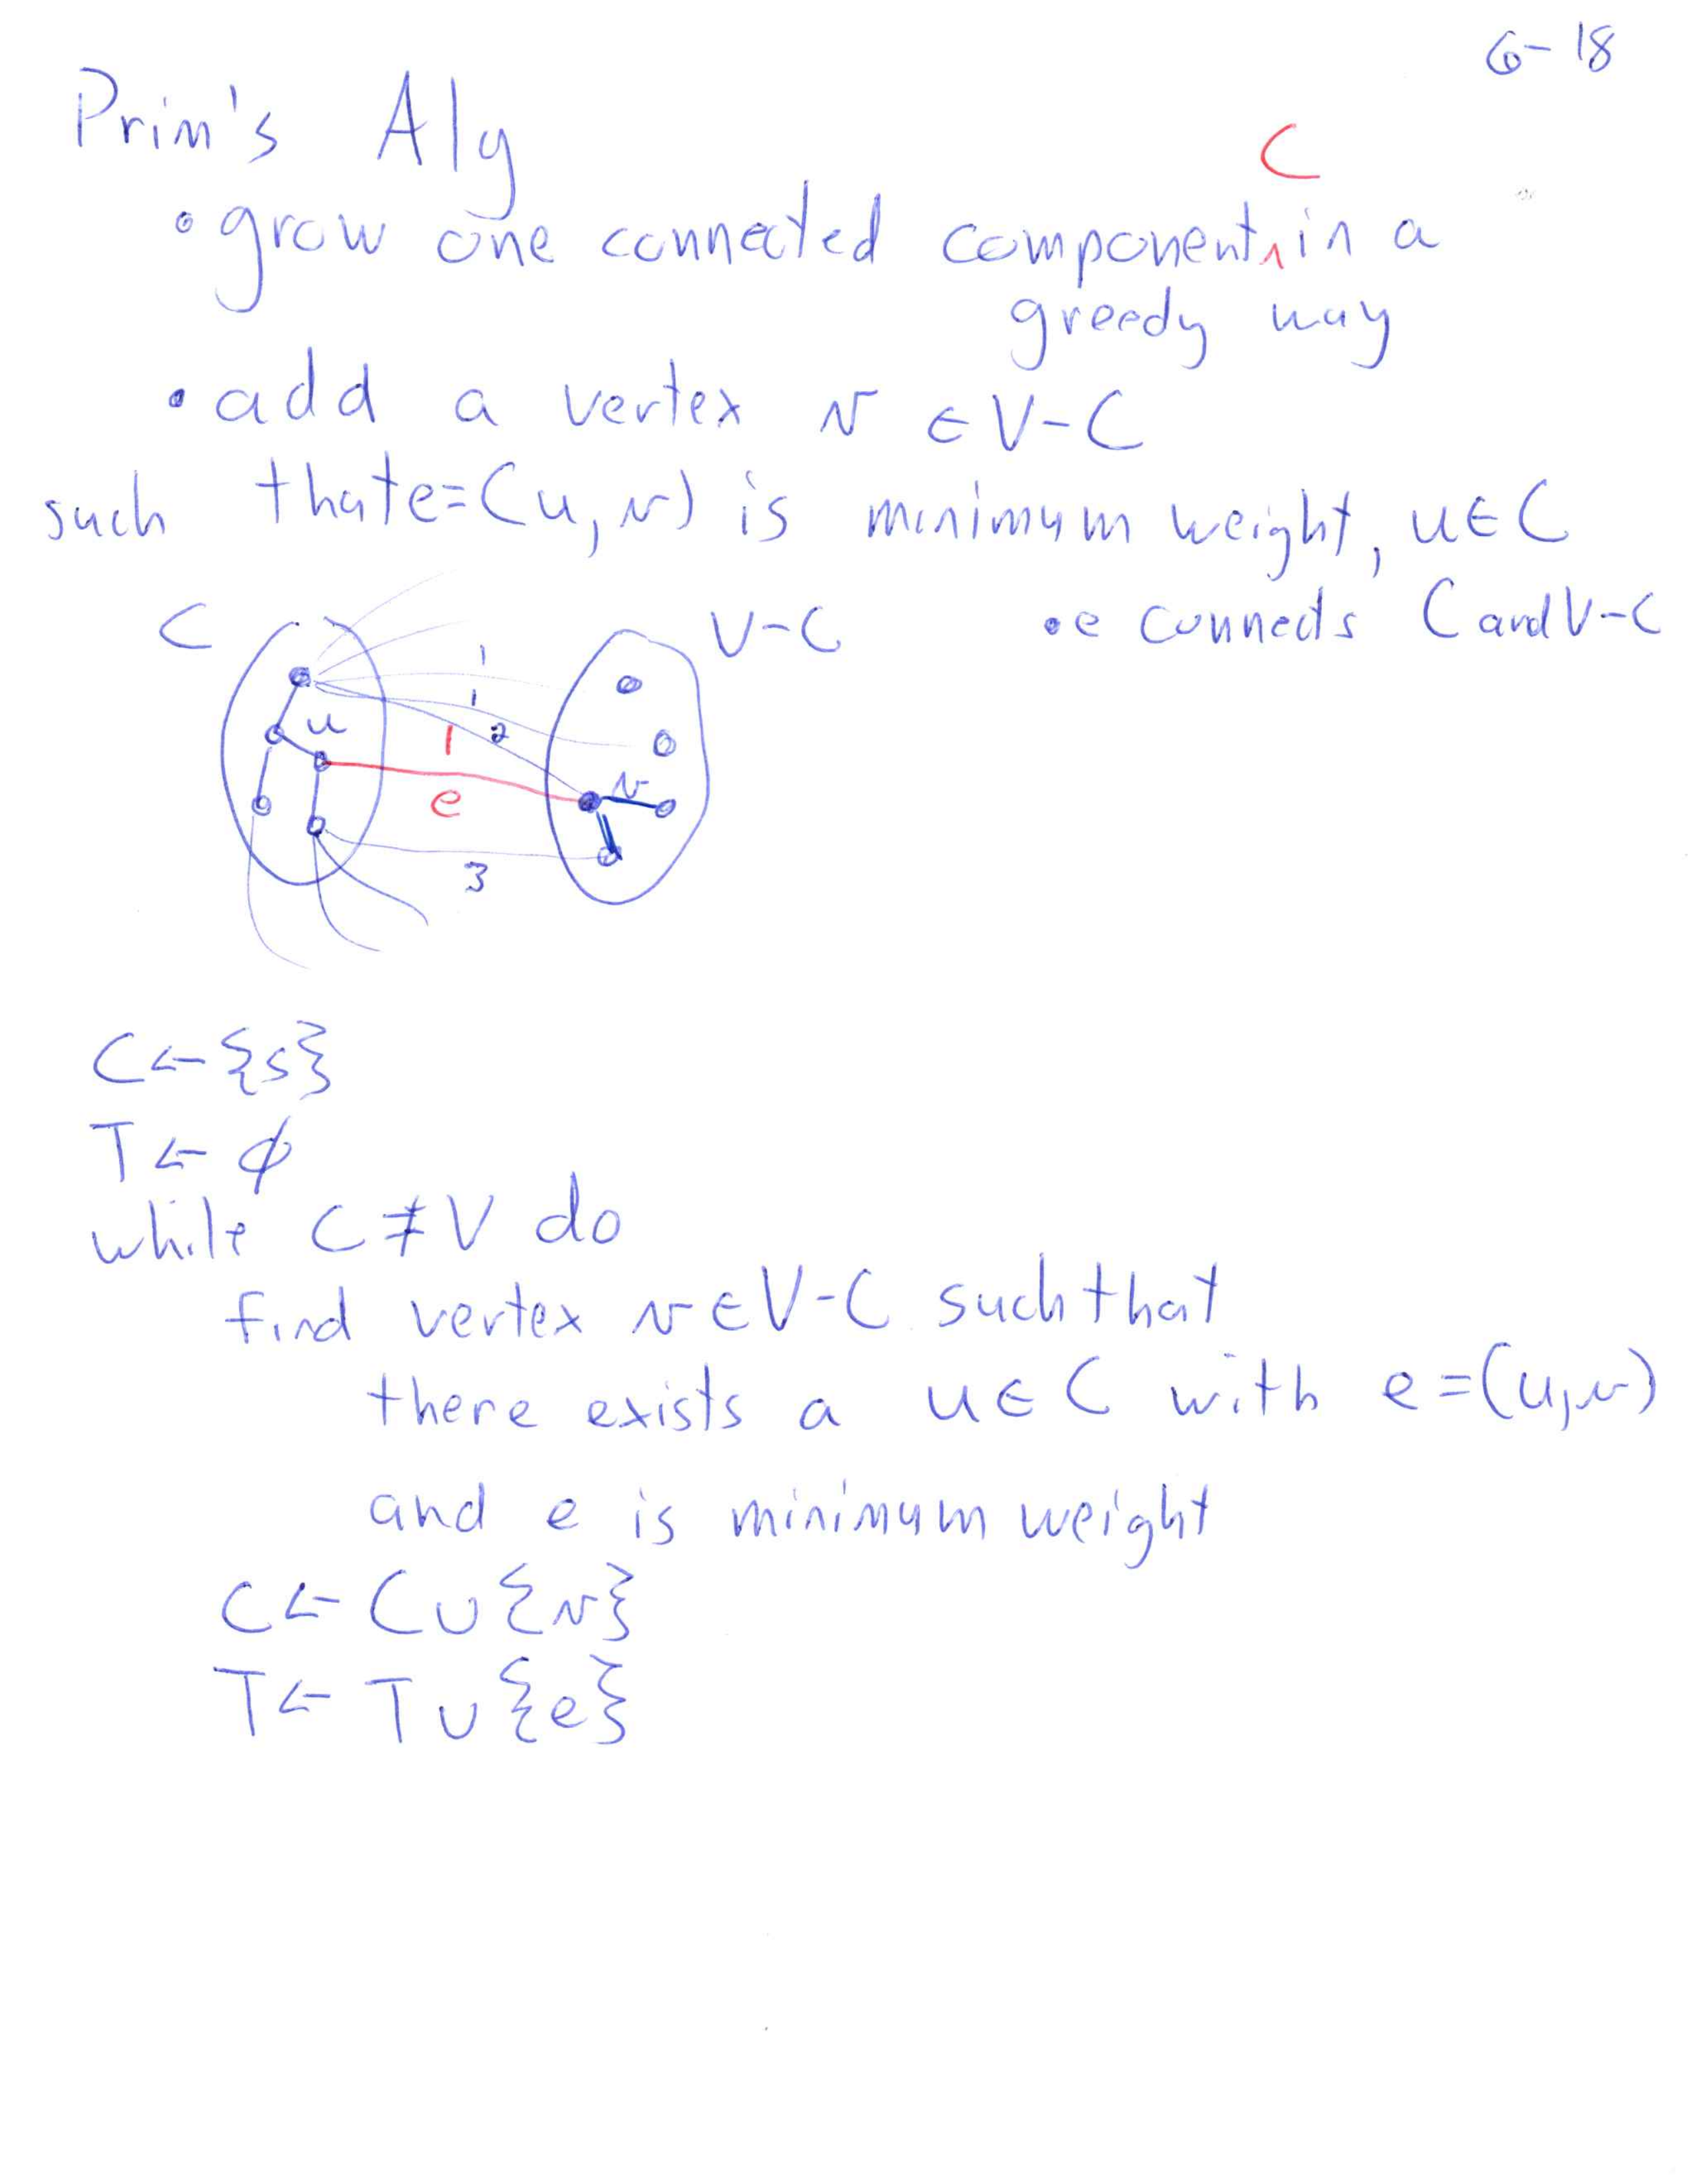 6-18
Prim's Alg
• grow one connected component C in a
greedy way
• add a vertex v ∈ V-C
such that e=(u,v) is minimum weight, u∈C
C V-C • e connects C and V-C
1
1
u 1 2
v
e
3
C ← {s}
T ← ∅
while C ≠ V do
find vertex v ∈ V-C such that
there exists a u ∈ C with e=(u,v)
and e is minimum weight
C ← C ∪ {v}
T ← T ∪ {e}